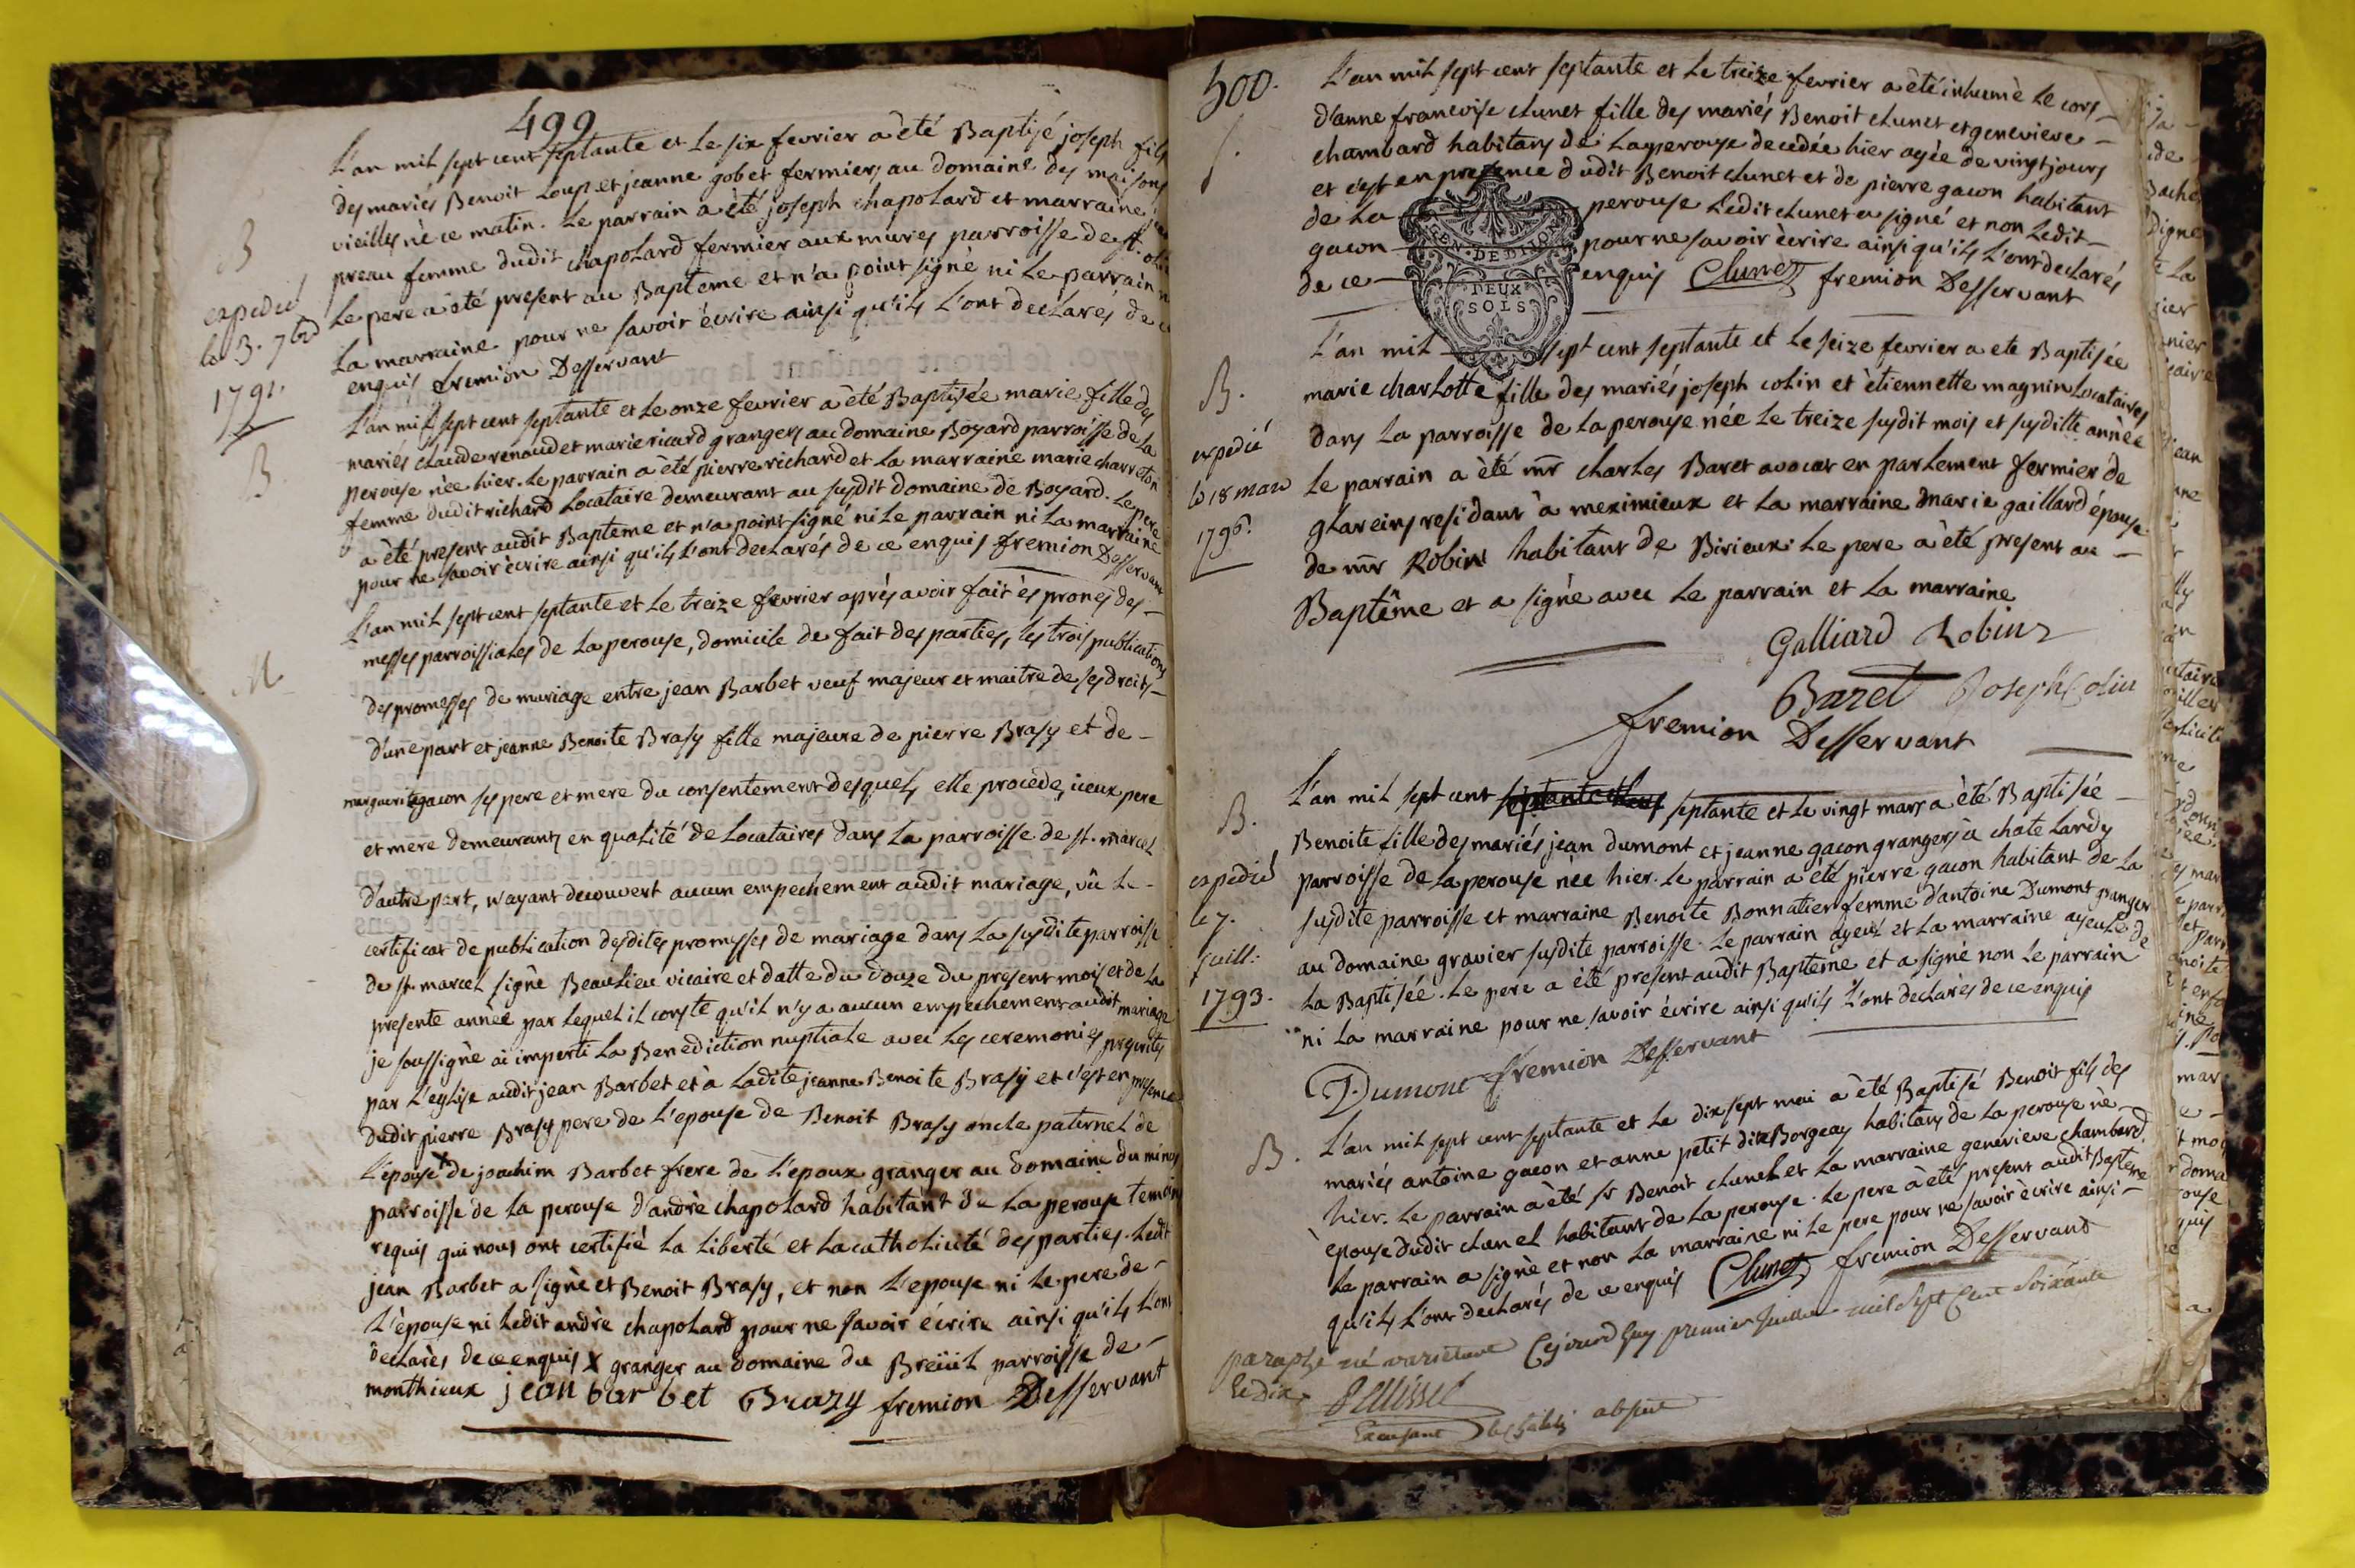 499
L'an mil sept cent septante et le six fevrier a èté Baptisé joseph fils
des mariés Benoit Loup et jeanne gobet fermiers au domaine des maisons
vieilles nè ce matin. Le parrain a èté joseph chapolard et marraine
preau femme dudit chapolard fermier aux mures parroisse de st.
Le pere a èté present au Bapteme et n'a point signè ni le parrain
La marraine pour ne savoir ècrire ainsi qu'ils l'ont declarés de
enquis fremion Desservant
B
expedié
le 3. 7bre
1791.
L'an mil sept cent septante et le onze fevrier a èté Baptisée marie fille des
mariés claude renaud et marie ricard grangers au domaine Boyard parroisse de La
perouse nèe hier. Le parrain a èté pierre richard et La marraine marie charreton
femme dudit richard Locataire demeurant au susdit domaine de Boyard. Le pere
a èté present audit Bapteme et n'a point signé ni le parrain ni La marraine
pour ne savoir ècrire ainsi qu'ils l'ont declarés de ce enquis fremion Desservant
B
L'an mil sept cent septante et Le treize fevrier après avoir fait ès prones des
messes parroissiales de La perouse, domicile de fait des parties, les trois publications
des promesses de mariage entre jean Barbet veuf majeur et maitre de ses droits
d'une part et jeanne Benoite Brasy fille majeure de pierre Brasy et de
marguerite gacon ses pere et mere du consentement desquels elle procede, iceux pere
et mere demeurants en qualité de Locataires dans La parroisse de st. marcel
d'autre part, n'ayant decouvert aucun empechement audit mariage, vû le
certificat de publication desdites promesses de mariage dans La susdite parroisse
de st. marcel signè Beaulieu vicaire et datte du douze du present mois et de La
presente annèe par lequel il conste qu'il n'y a aucun empechement audit mariage
je soussignè ai imparti La Benediction nuptiale avec les ceremonies prescrites
par L'eglise audit jean Barbet et à Ladite jeanne Benoite Brasy et c'est en presence
dudit pierre Brasy pere de L'epouse de Benoit Brasy oncle paternel de
L'epouse X de joachim Barbet frere de L'epoux granger au domaine du
parroisse de La perouse d'andrè chapolard habitant de La perouse temoins
requis qui nous ont certifiè La Liberté et La catholicité des parties. Ledit
jean Barbet a signè et Benoit Brasy, et non L'epouse ni Le pere de
L'èpouse ni Ledit andrè chapolard pour ne savoir écrire ainsi qu'ils l'ont
declarès de ce enquis X granger au domaine du Breüil parroisse de
monthieux jean barbet Brazy fremion Desservant
M
500.
L'an mil sept cent septante et Le treize fevrier a èté inhumè Le cors
d'anne francoise clunet fille des mariés Benoit clunet et genevieve
chambard habitans de Laperouse decedèe hier agèe de vingt jours
et c'est en presence dudit Benoit clunet et de pierre gacon habitant
de La perouse Ledit clunet a signé et non Ledit
gacon pour ne savoir ècrire ainsi qu'ils l'ont declarés
de ce enquis Clunet fremion Desservant
GEN. DE DIJON
DEUX
SOLS
L'an mil sept cent septante et Le seize fevrier a ete Baptisée
marie charlotte fille des mariés joseph colin et ètiennette magnin Locataires
dans La parroisse de La perouse née Le treize susdit mois et susditte annèe
Le parrain a èté mr charles Baret avocat en parlement fermier de
glareins residant à meximieux et La marraine marie gaillard épouse
de mr Robin habitant de Birieux. Le pere a èté present au
Baptême et a signè avec le parrain et La marraine
Galliard Robin
Baret Joseph Colin
fremion Desservant
B.
expedié
le 18 mars
1796.
L'an mil sept cent septante et le vingt mars a èté Baptisée
Benoite fille des mariés jean dumont et jeanne gacon grangers à chatelandy
parroisse de Laperouse nèe hier. Le parrain a èté pierre gacon habitant de La
susdite parroisse et marraine Benoite Bonnatier femme d'antoine Dumont granger
au domaine gravier susdite parroisse. Le parrain ayeul et La marraine ayeule de
La Baptisée. Le pere a èté present audit Bapteme et a signé non Le parrain
ni La marraine pour ne savoir écrire ainsi qu'ils l'ont declarès de ce enquis
Dumont fremion Desservant
B.
expedié
le 7.
juill:
1793.
L'an mil sept cent septante et Le dix sept mai a èté Baptisé Benoit fils des
mariés antoine gacon et anne petit dite Borgeay habitans de La perouse nè
hier. Le parrain a èté sr Benoit clunet et La marraine genevieve chambard
èpouse dudit clunet habitant de La perouse. Le pere a èté present audit Bapteme
Le parrain a signè et non La marraine ni Le pere pour ne savoir ècrire ainsi
qu'ils l'ont declarés de ce enquis Clunet fremion Desservant
B.
paraphé ne varietur Cejourdhuy premier juillet mil sept Cent soixante
et dix
absent